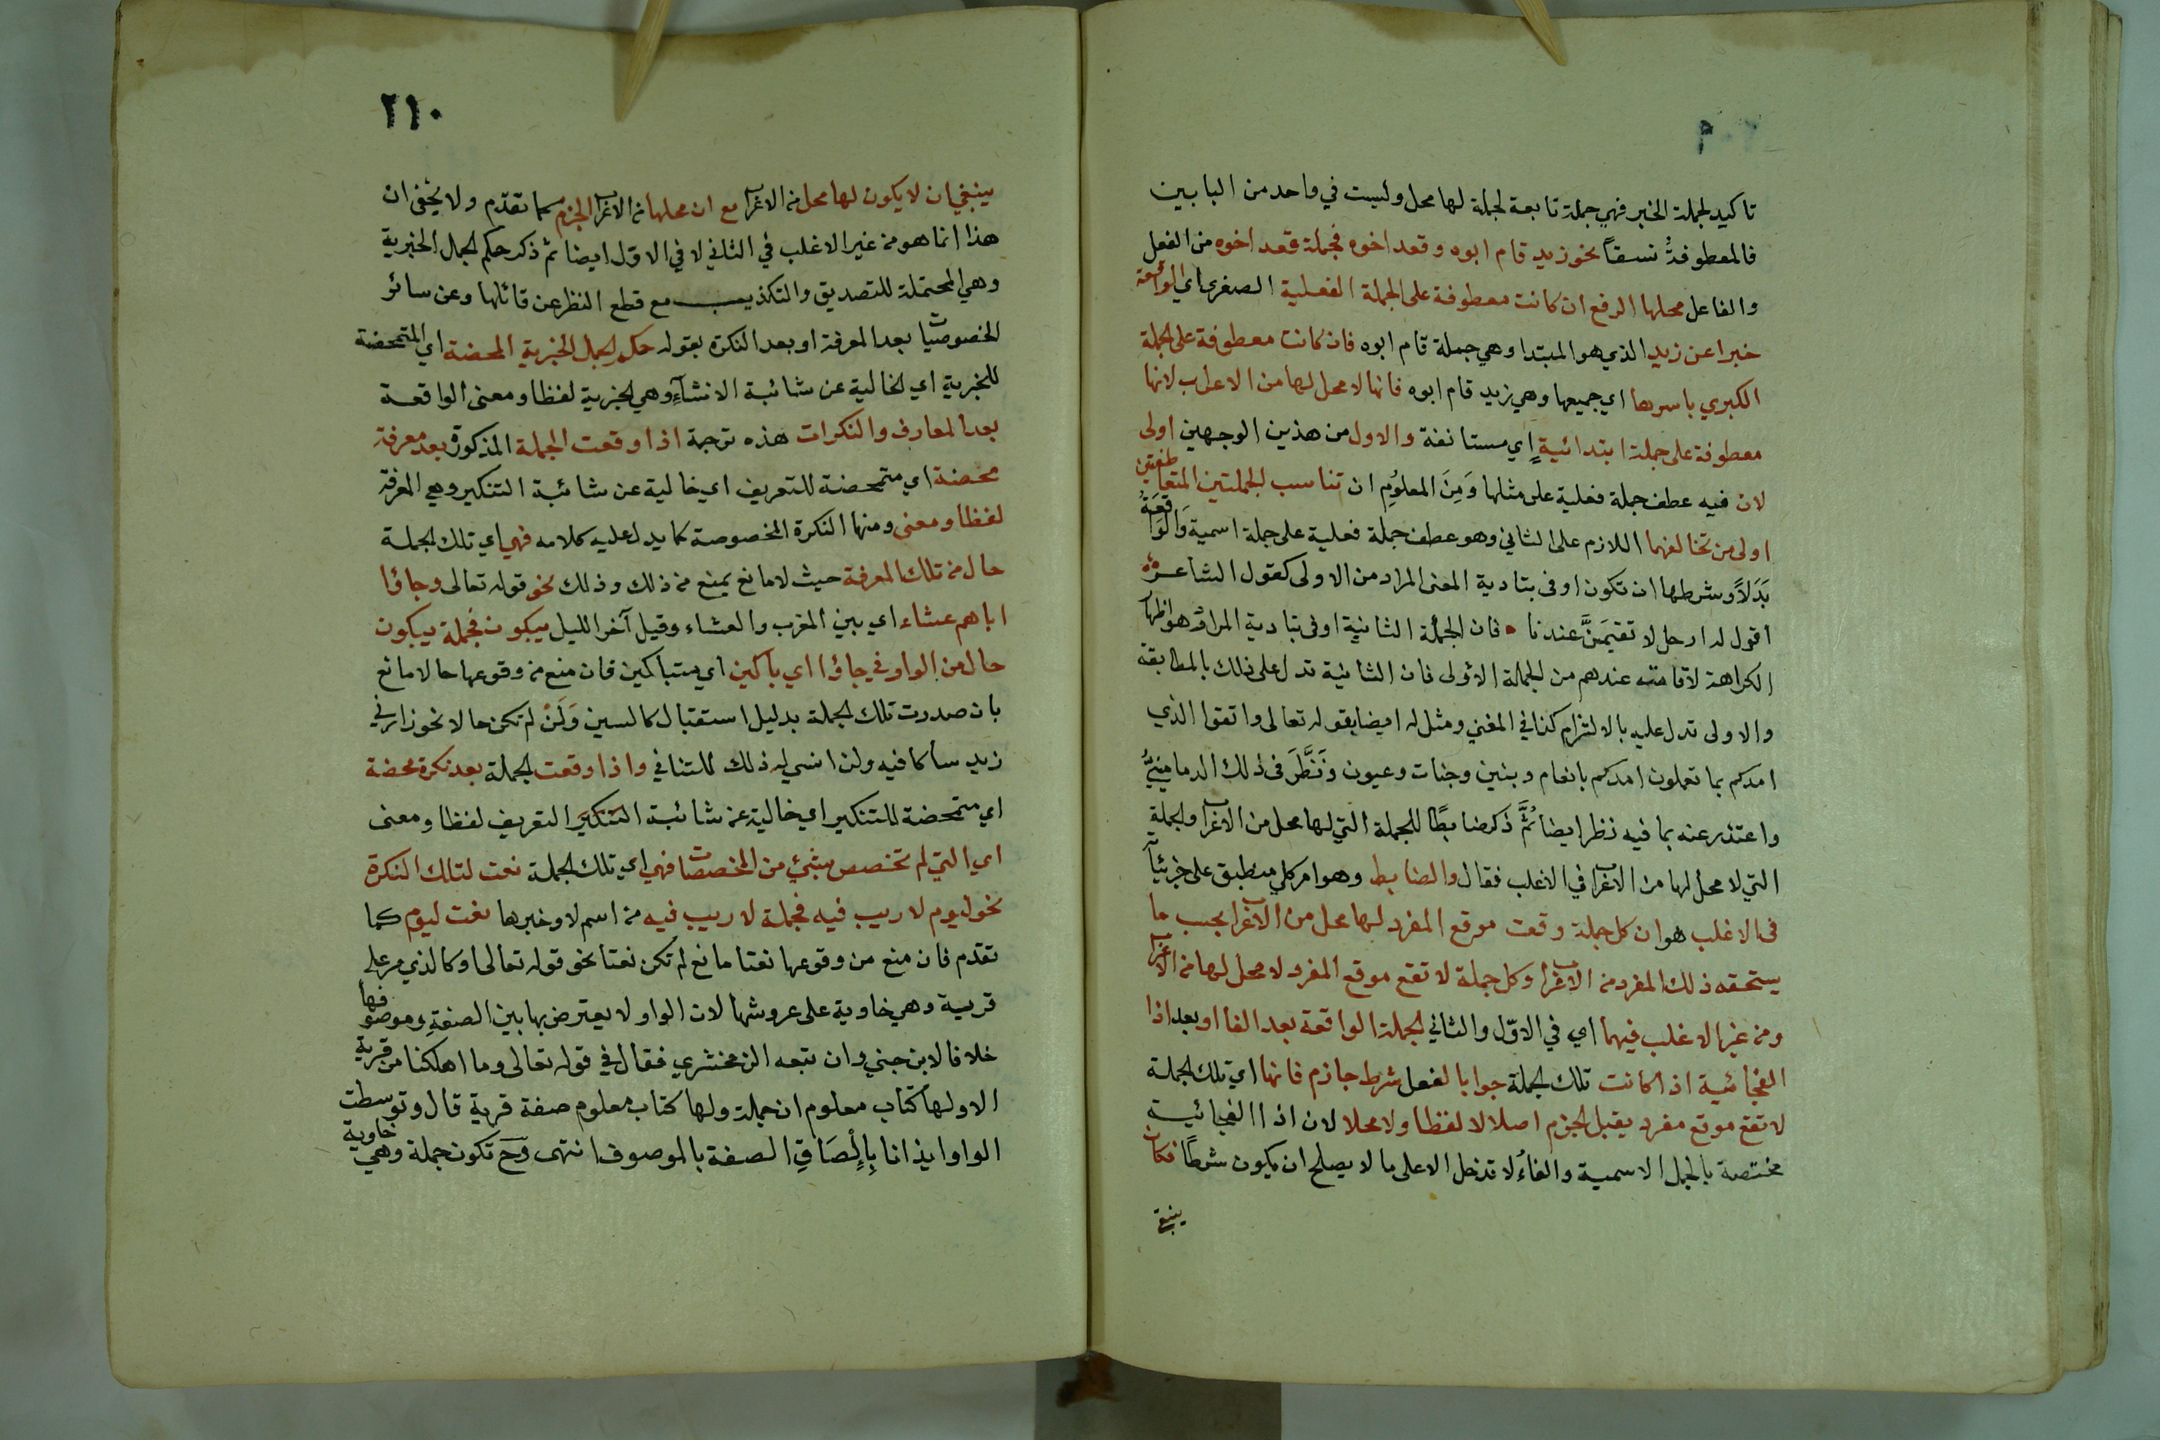 تاكيد لجملة الخبر فهي جملة تابعة لجملة لها محل وليست في واحد من البابين
فالمعطوفةُ نسقاً نحو زيد قام ابوه وقعد اخوه فجملة قعد اخوه من الفعل
والفاعل محلها الرفع ان كانت معطوفة على الجملة الفعلية الصغرى اي الواقعة
خبرا عن زيد الذي هو المبتدا وهي جملة قام ابوه فان كانت معطوفة على الجملة
الكبري باسرها اي جميعها وهي زيد قام ابوه فانها لا محل لها من الاعراب لانها
معطوفة على جملة ابتدائية اي مستانفة والاول من هذين الوجهين اولى
لان فيه عطف جملة فعلية على مثلها وَمِنَ المعلوُمِ ان تناسب الجملتين المتعاطفتين
اولى من تخالفهما اللازم على الثاني وهو عطف جملة فعلية على جملة اسمية وَالوَاقعَةُ
بَدَلاً وشرطها ان تكون اوفى بتادية المعنى المراد من الاولى كقول الشاعر
اقول له ارحل لا تقيمَنَّ عندنا فان الجملة الثانية اوفى بتادية المراد وهو اظهار
الكراهة لاقامته عندهم من الجملة الاولى فان الثانية تدل على ذلك بالمطابقة
والاولى تدل عليه بالالتزام كذا في المغني ومثل له ايضا بقوله تعالى واتقوا الذي
امدكم بما تعلمون امدكم بانعام وبنين وجنات وعيون وَنَظَّرَ في ذلك الدمامينيُّ
واعتذر عنه بما فيه نظر ايضا ثُمَّ ذكر ضابطًا للجملة التي لها محل من الاعراب والجملة
التي لا محل لها من الاعراب في الاغلب فقال والضابط وهو امر كلي منطبق على جزئيات
في الاغلب هو ان كل جملة وقعت موقع المفرد لها محل من الاعراب بحسب ما
يستحقه ذلك المفرد من الاعراب وكل جملة لا تقع موقع المفرد لا محل لها من الاعراب
ومن غير الاغلب فيهما اي في الاوّل والثاني الجملة الواقعة بعد الفا او بعد اذا
الفجائية اذا كانت تلك الجملة جوابا لفعل شرط جازم فانها اي تلك الجملة
لا تقع موقع مفرد يقبل الجزم اصلا لا لفظا ولا محلا لان اذا الفجائية
مختصة بالجمل الاسمية والفاءُ لا تدخل الا على ما لا يصلح ان يكون شرطًا فكان
ينبغي
٢١٠
ينبغي ان لا يكون لها محل من الاعراب مع ان محلها من الاعراب الجزم كما تقدّم ولا يخفى ان
هذا انما هو من غير الاغلب في الثاني لا في الاوّل ايضا ثم ذكر حكم الجمل الخبرية
وهي المحتملة للتصديق والتكذيب مع قطع النظر عن قائلها وعن سائر
الخصوصيات بعد المعرفة او بعد النكرة بقوله حكم الجمل الخبرية المحضة اي المتمحضة
للخبرية اي الخالية عن شائبة الانشاء وهي الخبرية لفظا ومعنى الواقعة
بعد المعارف والنكرات هذه ترجمة اذا وقعت الجملة المذكورة بعد معرفة
محضة اي متمحضة للتعريف اي خالية عن شائبة التنكير وهي المعرفة
لفظا ومعنى ومنها النكرة المخصوصة كما يدل عليه كلامه فهي اي تلك الجملة
حال من تلك المعرفة حيث لا مانع يمنع من ذلك وذلك نحو قوله تعالى وجاؤا
اباهم عشاء اي بين المغرب والعشاء وقيل آخر الليل يبكون فجملة يبكون
حال من الواو في جاؤا اي باكين اي متباكين فان منع من وقوعها حالا مانع
بان صدرت تلك الجملة بدليل استقبال كالسين وَلَنْ لم تكن حالا نحو زارني
زيد ساكافيه ولن انسي له ذلك للتنافي واذا وقعت الجملة بعد نكرة محضة
اي متمحضة للتنكير اي خالية عن شائبة التنكير التعريف لفظا ومعنى
اي التي لم تخصص بشئ من المخصصات فهي اي تلك الجملة نعت لتلك النكرة
نحو ليوم لا ريب فيه فجملة لا ريب فيه من اسم لا وخبرها نعت ليوم كما
تقدم فان منع من وقوعها نعتا مانع لم تكن نعتا نحو قوله تعالى او كالذي مر على
قرية وهي خاوية على عروشها لان الواو لا يعترض بها بين الصفةِ وموصوفها
خلافا لابن جني وان تبعه الزمخشري فقال في قوله تعالى وما اهلكنا من قرية
الا ولها كتاب معلوم ان جملة ولها كتاب معلوم صفة قرية قال وتوسطت
الواو ايذانا بِاِلْصَاقِ الصفة بالموصوف انتهى وَحَ تكون جملة وهي خاوية